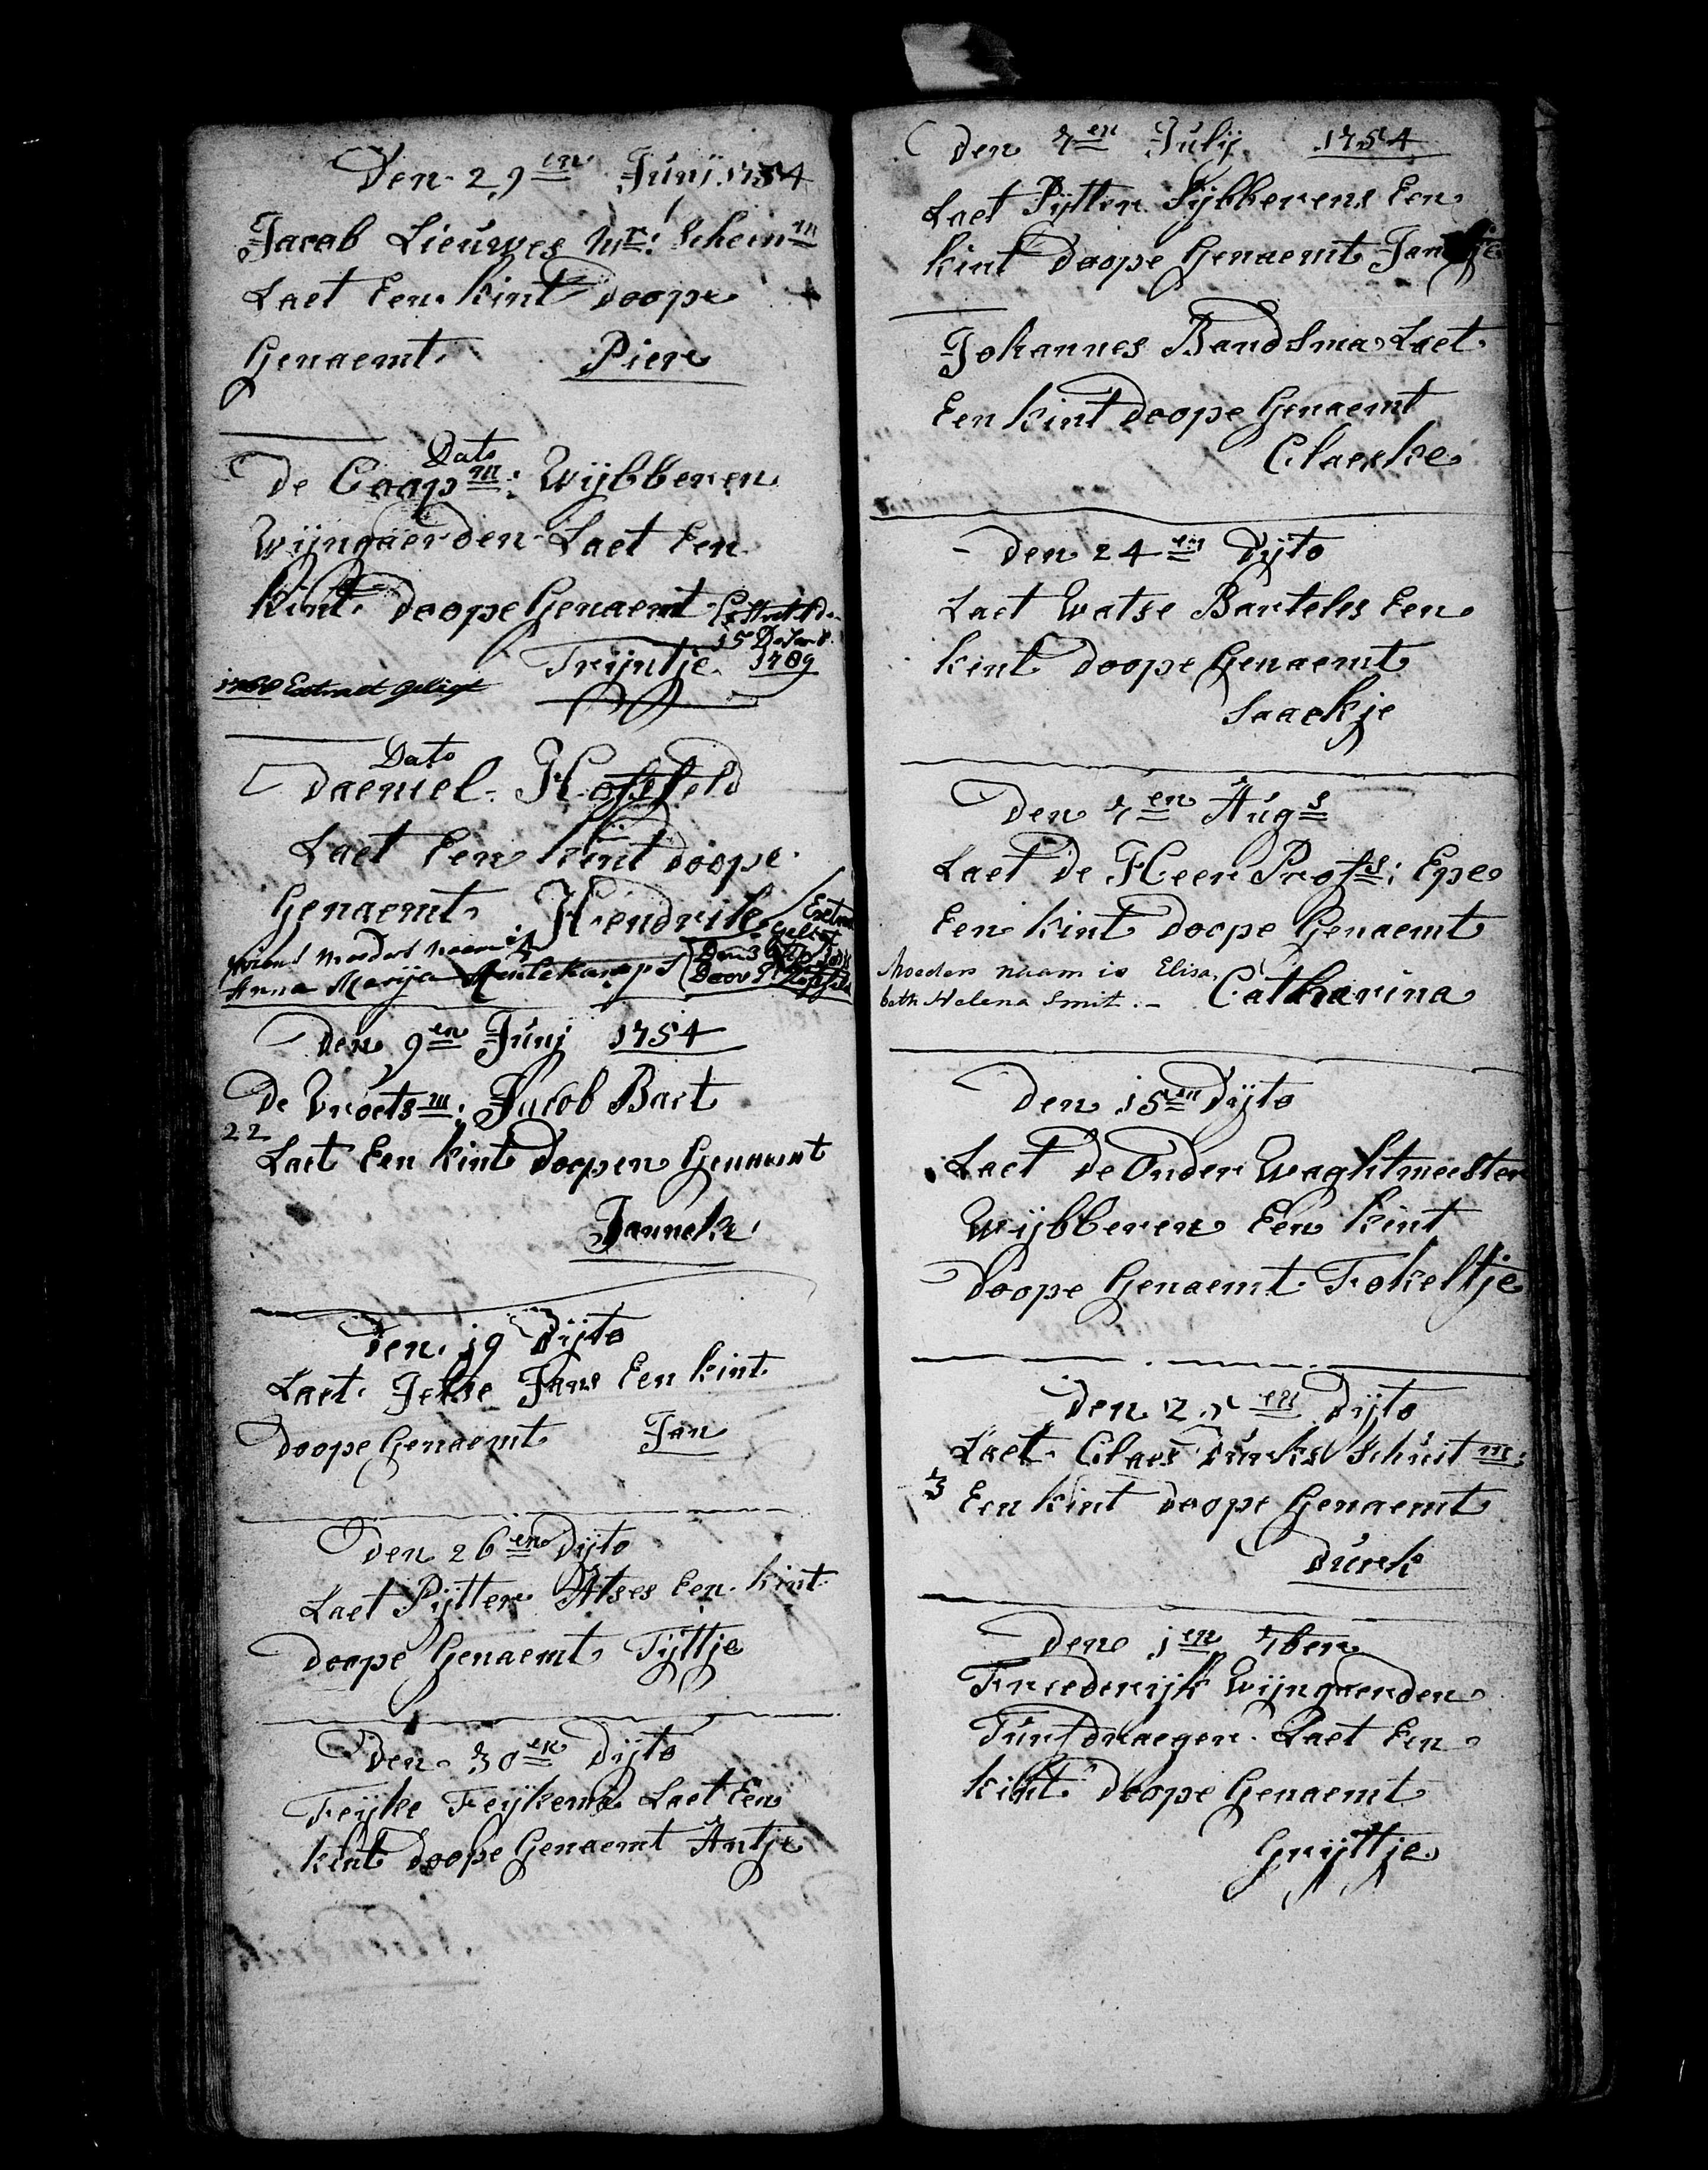 Den 29en Junij 1754
Jacob Lieuwes Mr: Schem
Laet Een kint Doope
Genaemt Pier
Dato
De Coopm: Wijbberen
Wijngaerden Laet Een
kint Doope Genaemt
15 Decemb.
Trijntje 1789
Extract geligt
Dato
Daeniel Hofffeld
Laet Een kint doope
Genaemt Hendrik
Moeders naem is
Anna Marija
Den 9en Junij 1754
De Vroetsm: Jacob Bart
22
Laet Een kint Doopen Genaemt
Janneke
Den 19 Dijto
Laet Jelse Jans Een kint
Doope Genaemt Jan
Den 26en Dijto
Laet Pijtter Atses Een kint
Doope Genaemt Tijttje
Den 30en Dijto
Feijke Feijkema Laet Een
kint Doope Genaemt Antje
Den 7en Julij 1754
Laet Pijtter Sijbberens Een
kint Doope Genaemt
Johannes Bandsma Laet
Een kint doope Genaemt
Claeske
Den 24en Dijto
Laet Watse Bartels Een
kint Doope Genaemt
Saackje
Den 7en Augs
Laet De Heer Profs: Epe
Een kint Doope Genaemt
Moeders naam is Elisa
beth Helena Smit. - Catharina
Den 15en Dijto
Laet De Onder Waghtmeester
Wijbberen Een kint
Doope Genaemt Fokeltje
Den en Dijto
Laet Claes Durks Schuitm:
3
Een kint Doope Genaemt
Durk
Den 1en 7ber
Friederijk Wijngaerden
Turfdraeger Laet Een
kint Doope Genaemt
Grijttje